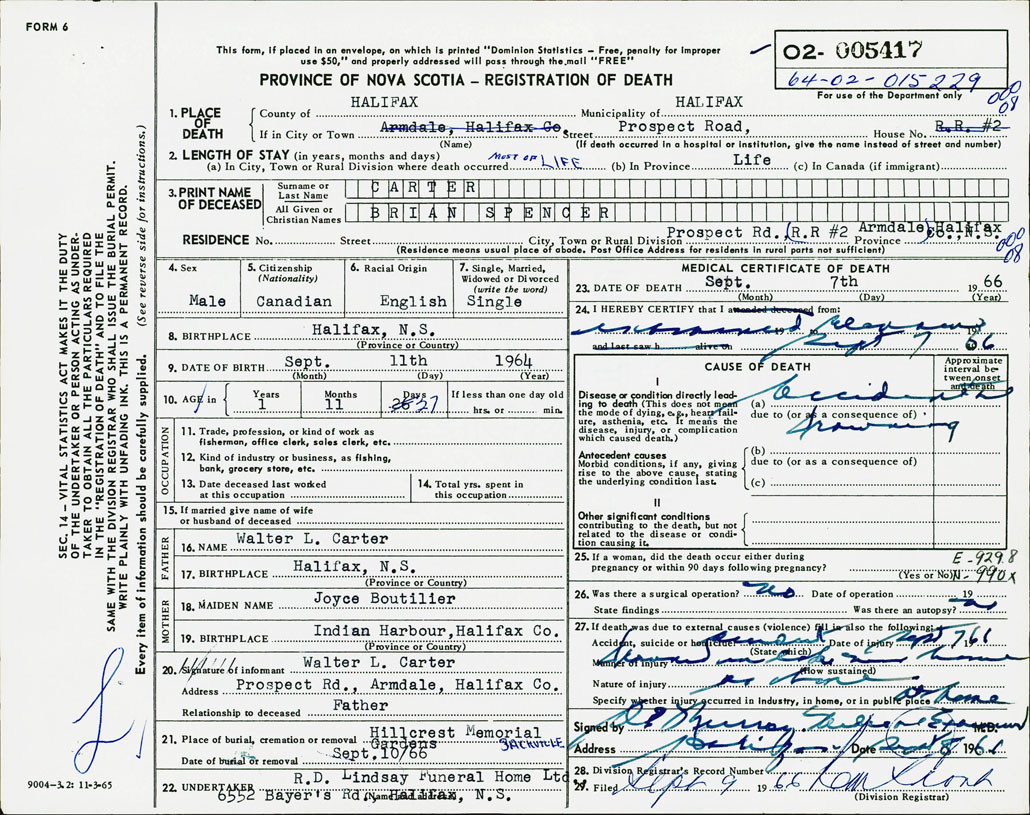 FORM 6
This form, if placed in an envelope, on which is printed "Dominion Statistics – Free, penalty for improper
use $50," and properly addressed will pass through the mail "FREE"
PROVINCE OF NOVA SCOTIA – REGISTRATION OF DEATH
02- 005417
64-02-015229
For use of the Department only
000
08
1. PLACE OF DEATH
County of HALIFAX Municipality of HALIFAX
If in City or Town Armdale, Halifax Co. Street Prospect Road, House No. R.R. #2
(Name) (If death occurred in a hospital or institution, give the name instead of street and number)
2. LENGTH OF STAY (in years, months and days)
(a) In City, Town or Rural Division where death occurred MOST OF LIFE (b) In Province Life (c) In Canada (if immigrant)
3. PRINT NAME OF DECEASED
Surname or Last Name CARTER
All Given or Christian Names BRIAN SPENCER
RESIDENCE No. Street City, Town or Rural Division Prospect Rd., (R.R #2 Armdale) Province Halifax Co., N.S.
(Residence means usual place of abode. Post Office Address for residents in rural parts not sufficient)
000
08
4. Sex Male
5. Citizenship (Nationality) Canadian
6. Racial Origin English
7. Single, Married, Widowed or Divorced (write the word) Single
8. BIRTHPLACE Halifax, N.S.
(Province or Country)
9. DATE OF BIRTH Sept. 11th 1964
(Month) (Day) (Year)
10. AGE in Years 1 Months 11 Days 26 27 If less than one day old hrs. or min.
OCCUPATION
11. Trade, profession, or kind of work as fisherman, office clerk, sales clerk, etc.
12. Kind of industry or business, as fishing, bank, grocery store, etc.
13. Date deceased last worked at this occupation
14. Total yrs. spent in this occupation
15. If married give name of wife or husband of deceased
FATHER
16. NAME Walter L. Carter
17. BIRTHPLACE Halifax, N.S.
(Province or Country)
MOTHER
18. MAIDEN NAME Joyce Boutilier
19. BIRTHPLACE Indian Harbour, Halifax Co.
(Province or Country)
20. Signature of informant Walter L. Carter
Address Prospect Rd., Armdale, Halifax Co.
Relationship to deceased Father
21. Place of burial, cremation or removal Hillcrest Memorial Gardens SACKVILLE
Date of burial or removal Sept.10/66
22. UNDERTAKER R.D. Lindsay Funeral Home Ltd
6552 Bayer's Rd., Halifax, N.S.
(Name and address)
MEDICAL CERTIFICATE OF DEATH
23. DATE OF DEATH Sept. 7th 1966
(Month) (Day) (Year)
24. I HEREBY CERTIFY that I attended deceased from:
19 to 19
and last saw h alive on Sept 7 66
CAUSE OF DEATH
Approximate interval between onset and death
I
Disease or condition directly leading to death (This does not mean the mode of dying, e.g., heart failure, asthenia, etc. It means the disease, injury, or complication which caused death.)
(a) Accidental
due to (or as a consequence of)
drowning
Antecedent causes
Morbid conditions, if any, giving rise to the above cause, stating the underlying condition last.
(b)
due to (or as a consequence of)
(c)
II
Other significant conditions
contributing to the death, but not related to the disease or condition causing it.
25. If a woman, did the death occur either during pregnancy or within 90 days following pregnancy?
(Yes or No)
E-929.8
N-990x
26. Was there a surgical operation? No Date of operation 19
State findings Was there an autopsy? no
27. If death was due to external causes (violence) fill in also the following:
Accident, suicide or homicide? Date of injury Sept 7 66
(State which)
Manner of injury in lake near home
(How sustained)
Nature of injury as above
Specify whether injury occurred in Industry, in home, or in public place at home
Signed by Murray Medical Examiner M.D.
Address Halifax Date Sept 8 1966
28. Division Registrar's Record Number
29. Filed Sept 9 1966
(Division Registrar)
SEC. 14 – VITAL STATISTICS ACT MAKES IT THE DUTY
OF THE UNDERTAKER OR PERSON ACTING AS UNDER-
TAKER TO OBTAIN ALL THE PARTICULARS REQUIRED
IN THE "REGISTRATION OF DEATH" AND TO FILE THE
SAME WITH THE DIVISION REGISTRAR WHO SHALL ISSUE THE BURIAL PERMIT.
WRITE PLAINLY WITH UNFADING INK. THIS IS A PERMANENT RECORD.
Every item of information should be carefully supplied. (See reverse side for instructions.)
9004-3.2: 11-3-65